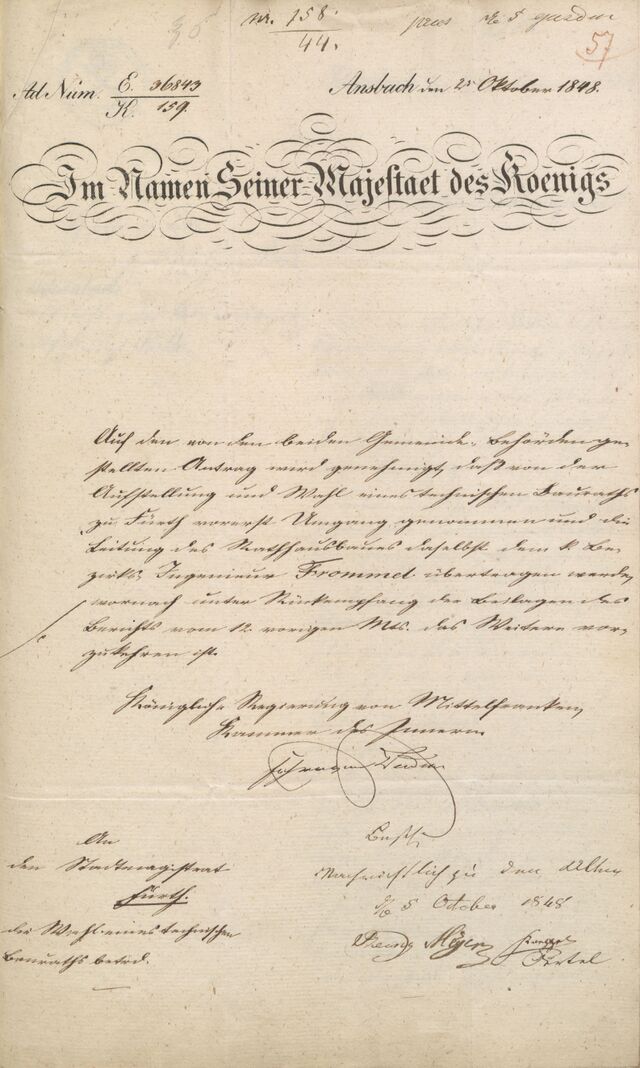 Nr. 158.
44.
57
Ad Núm. E. 36843
K. 159.
Ansbach den 2n Oktober 1848.
Im Namen Seiner Majestaet des Koenigs
Auf den von den beiden Gemeinde-Behörden ge-
stellten Antrag wird genehmigt, daß von der
Aufstellung und Wahl eines technischen Bauraths
zu Fürth vorerst Umgang genommen und die
Leitung des Rathhausbaues daselbst dem k. Be-
zirks-Ingenieur Frommel übertragen werde,
wornach unter Rückempfang der Beilagen des
Berichts vom 12. vorigen Mts. das Weitere vor-
zukehren ist.
Königliche Regierung von Mittelfranken,
Kammer des Innern.
An
den Stadtmagistrat
Fürth.
die Wahl eines technischen
Bauraths betrd.
Beschl.
Nachrichtlich zu den Akten
5 October 1848
Meyer